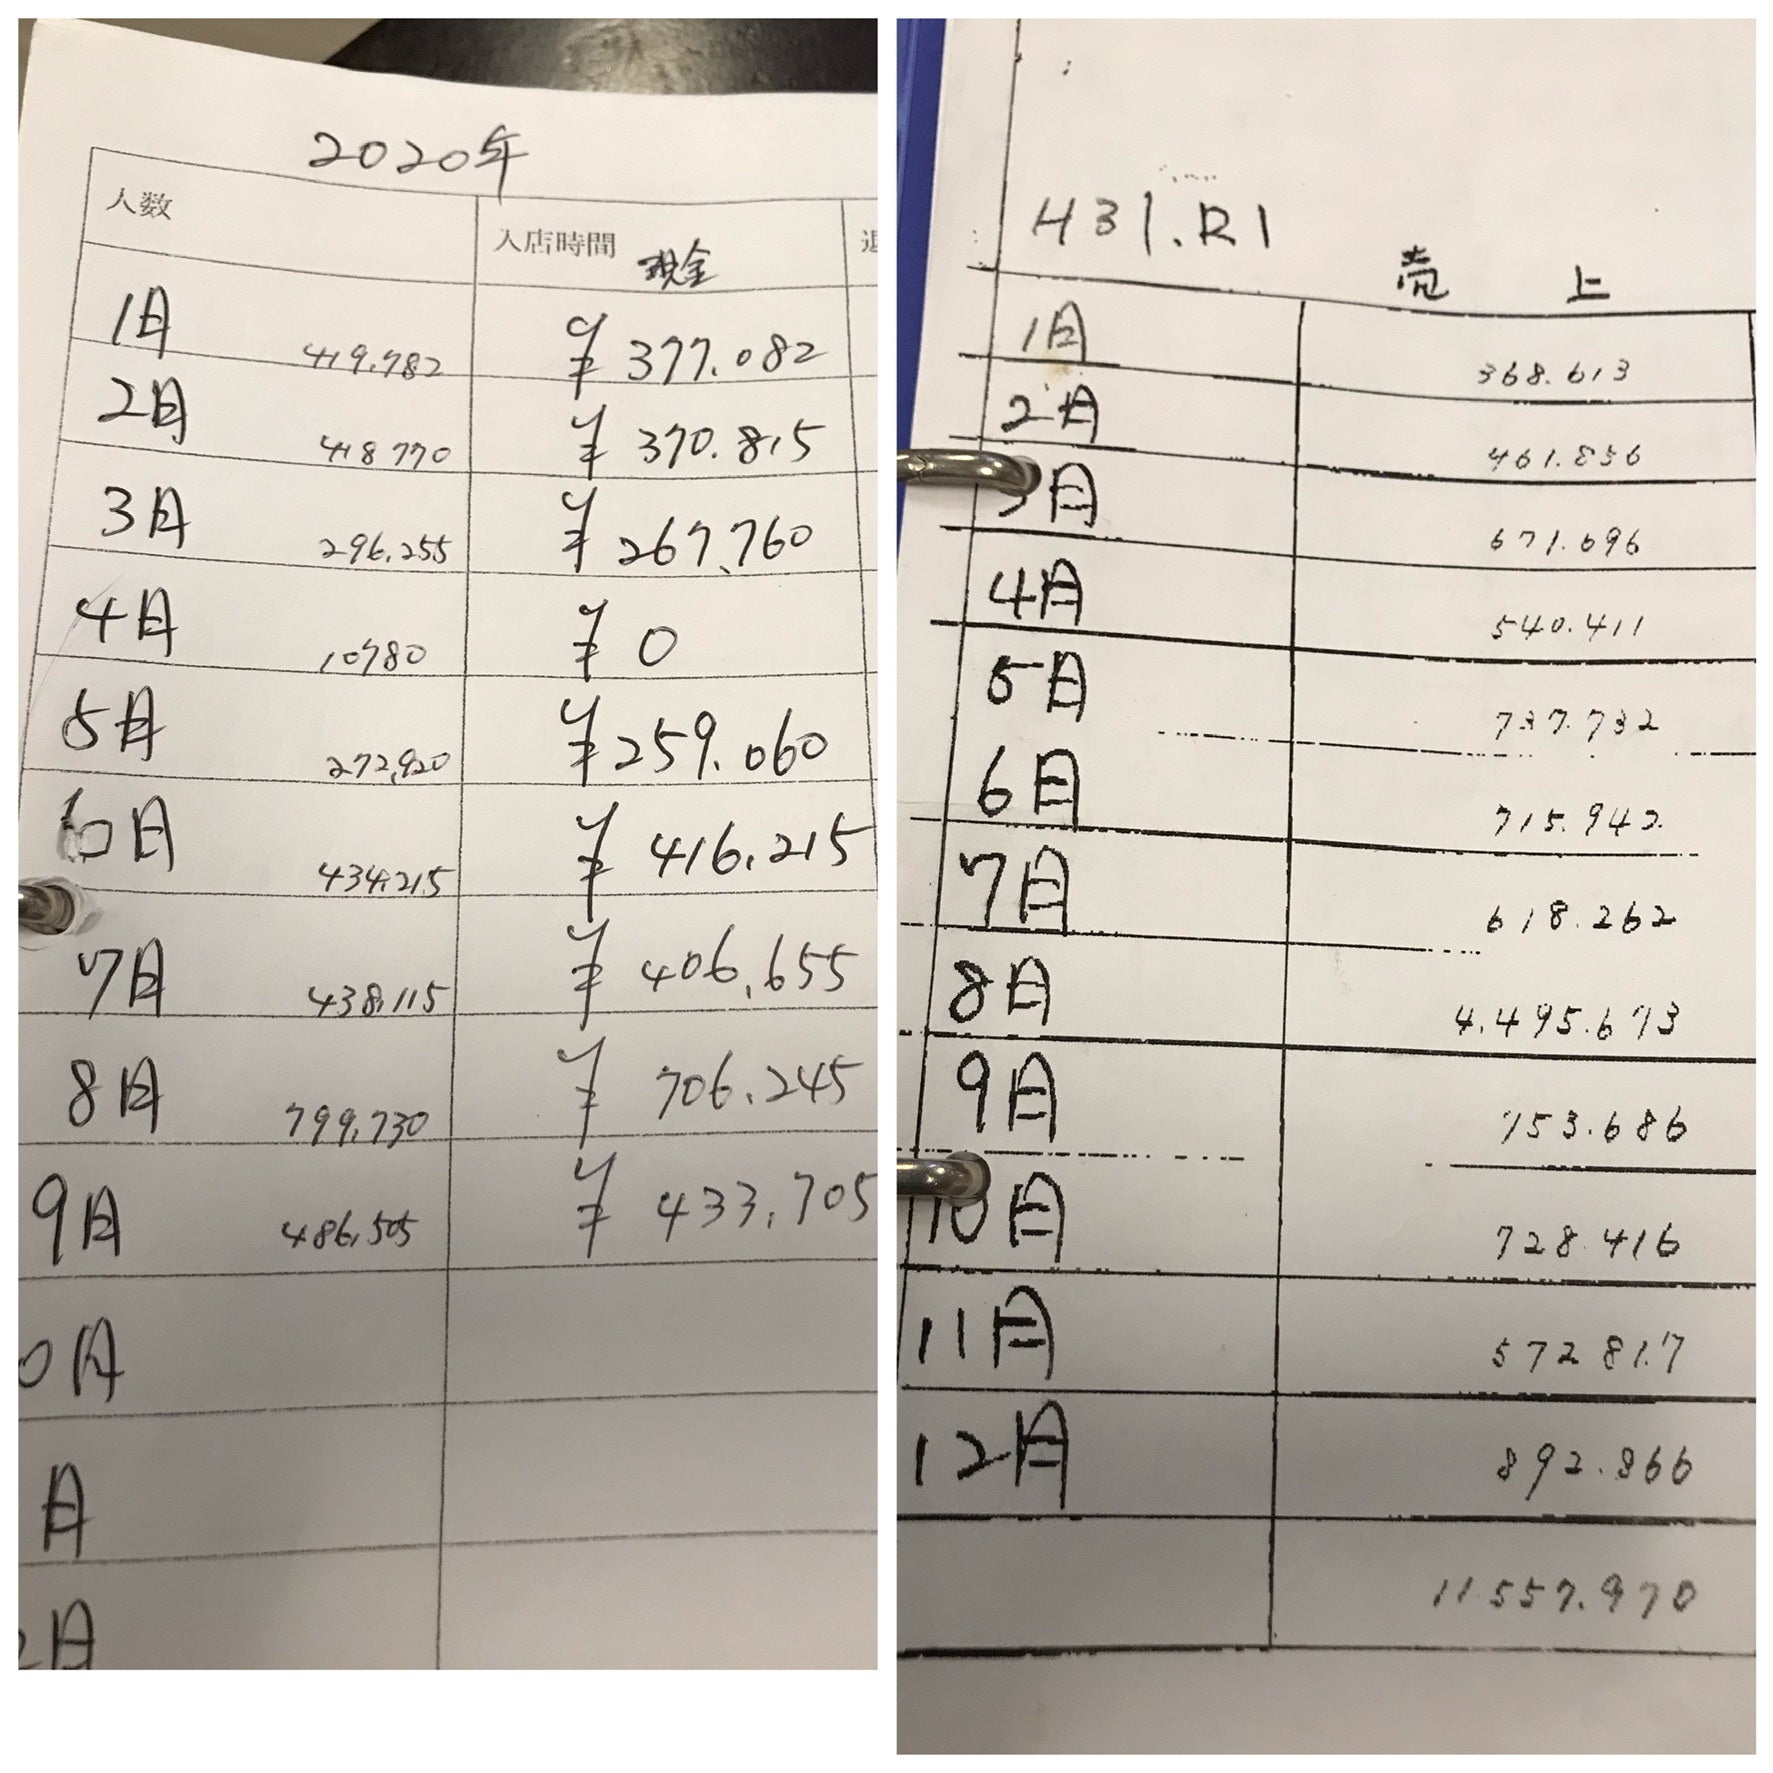 2020年
人数 入店時間 現金
1月 419.782 ¥ 377.082
2月 418 770 ¥ 370.815
3月 296.255 ¥ 267,760
4月 10780 ¥ 0
5月 272,920 ¥ 259.060
6月 434,215 ¥ 416.215
7月 438,115 ¥ 406,655
8月 799,730 ¥ 706.245
9月 486,505 ¥ 433,705
0月
月
2月
H31.R1
売 上
1月 368.613
2月 461.856
3月 671.696
4月 540.411
5月 737.732
6月 715.942
7月 618.262
8月 4.495.673
9月 753.686
10月 728.416
11月 572 817
12月 892.866
11 557.970